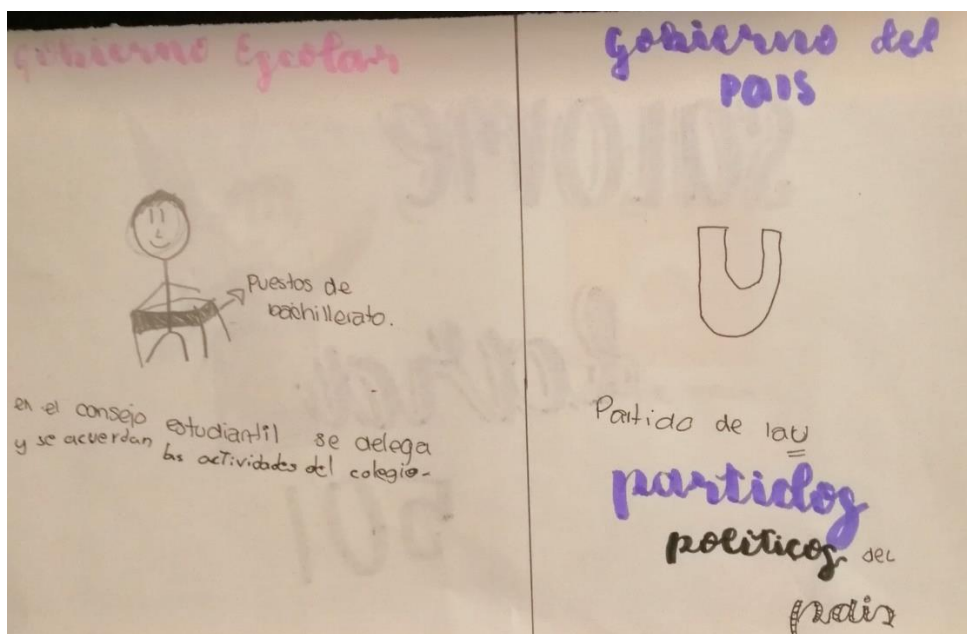 Gobierno Escolar
Puestos de
bachillerato.
en el consejo estudiantil se delega
y se acuerdan las actividades del colegio-
gobierno del
PAIS
U
Partido de la U
partidos
políticos del
pais
SALOME
501